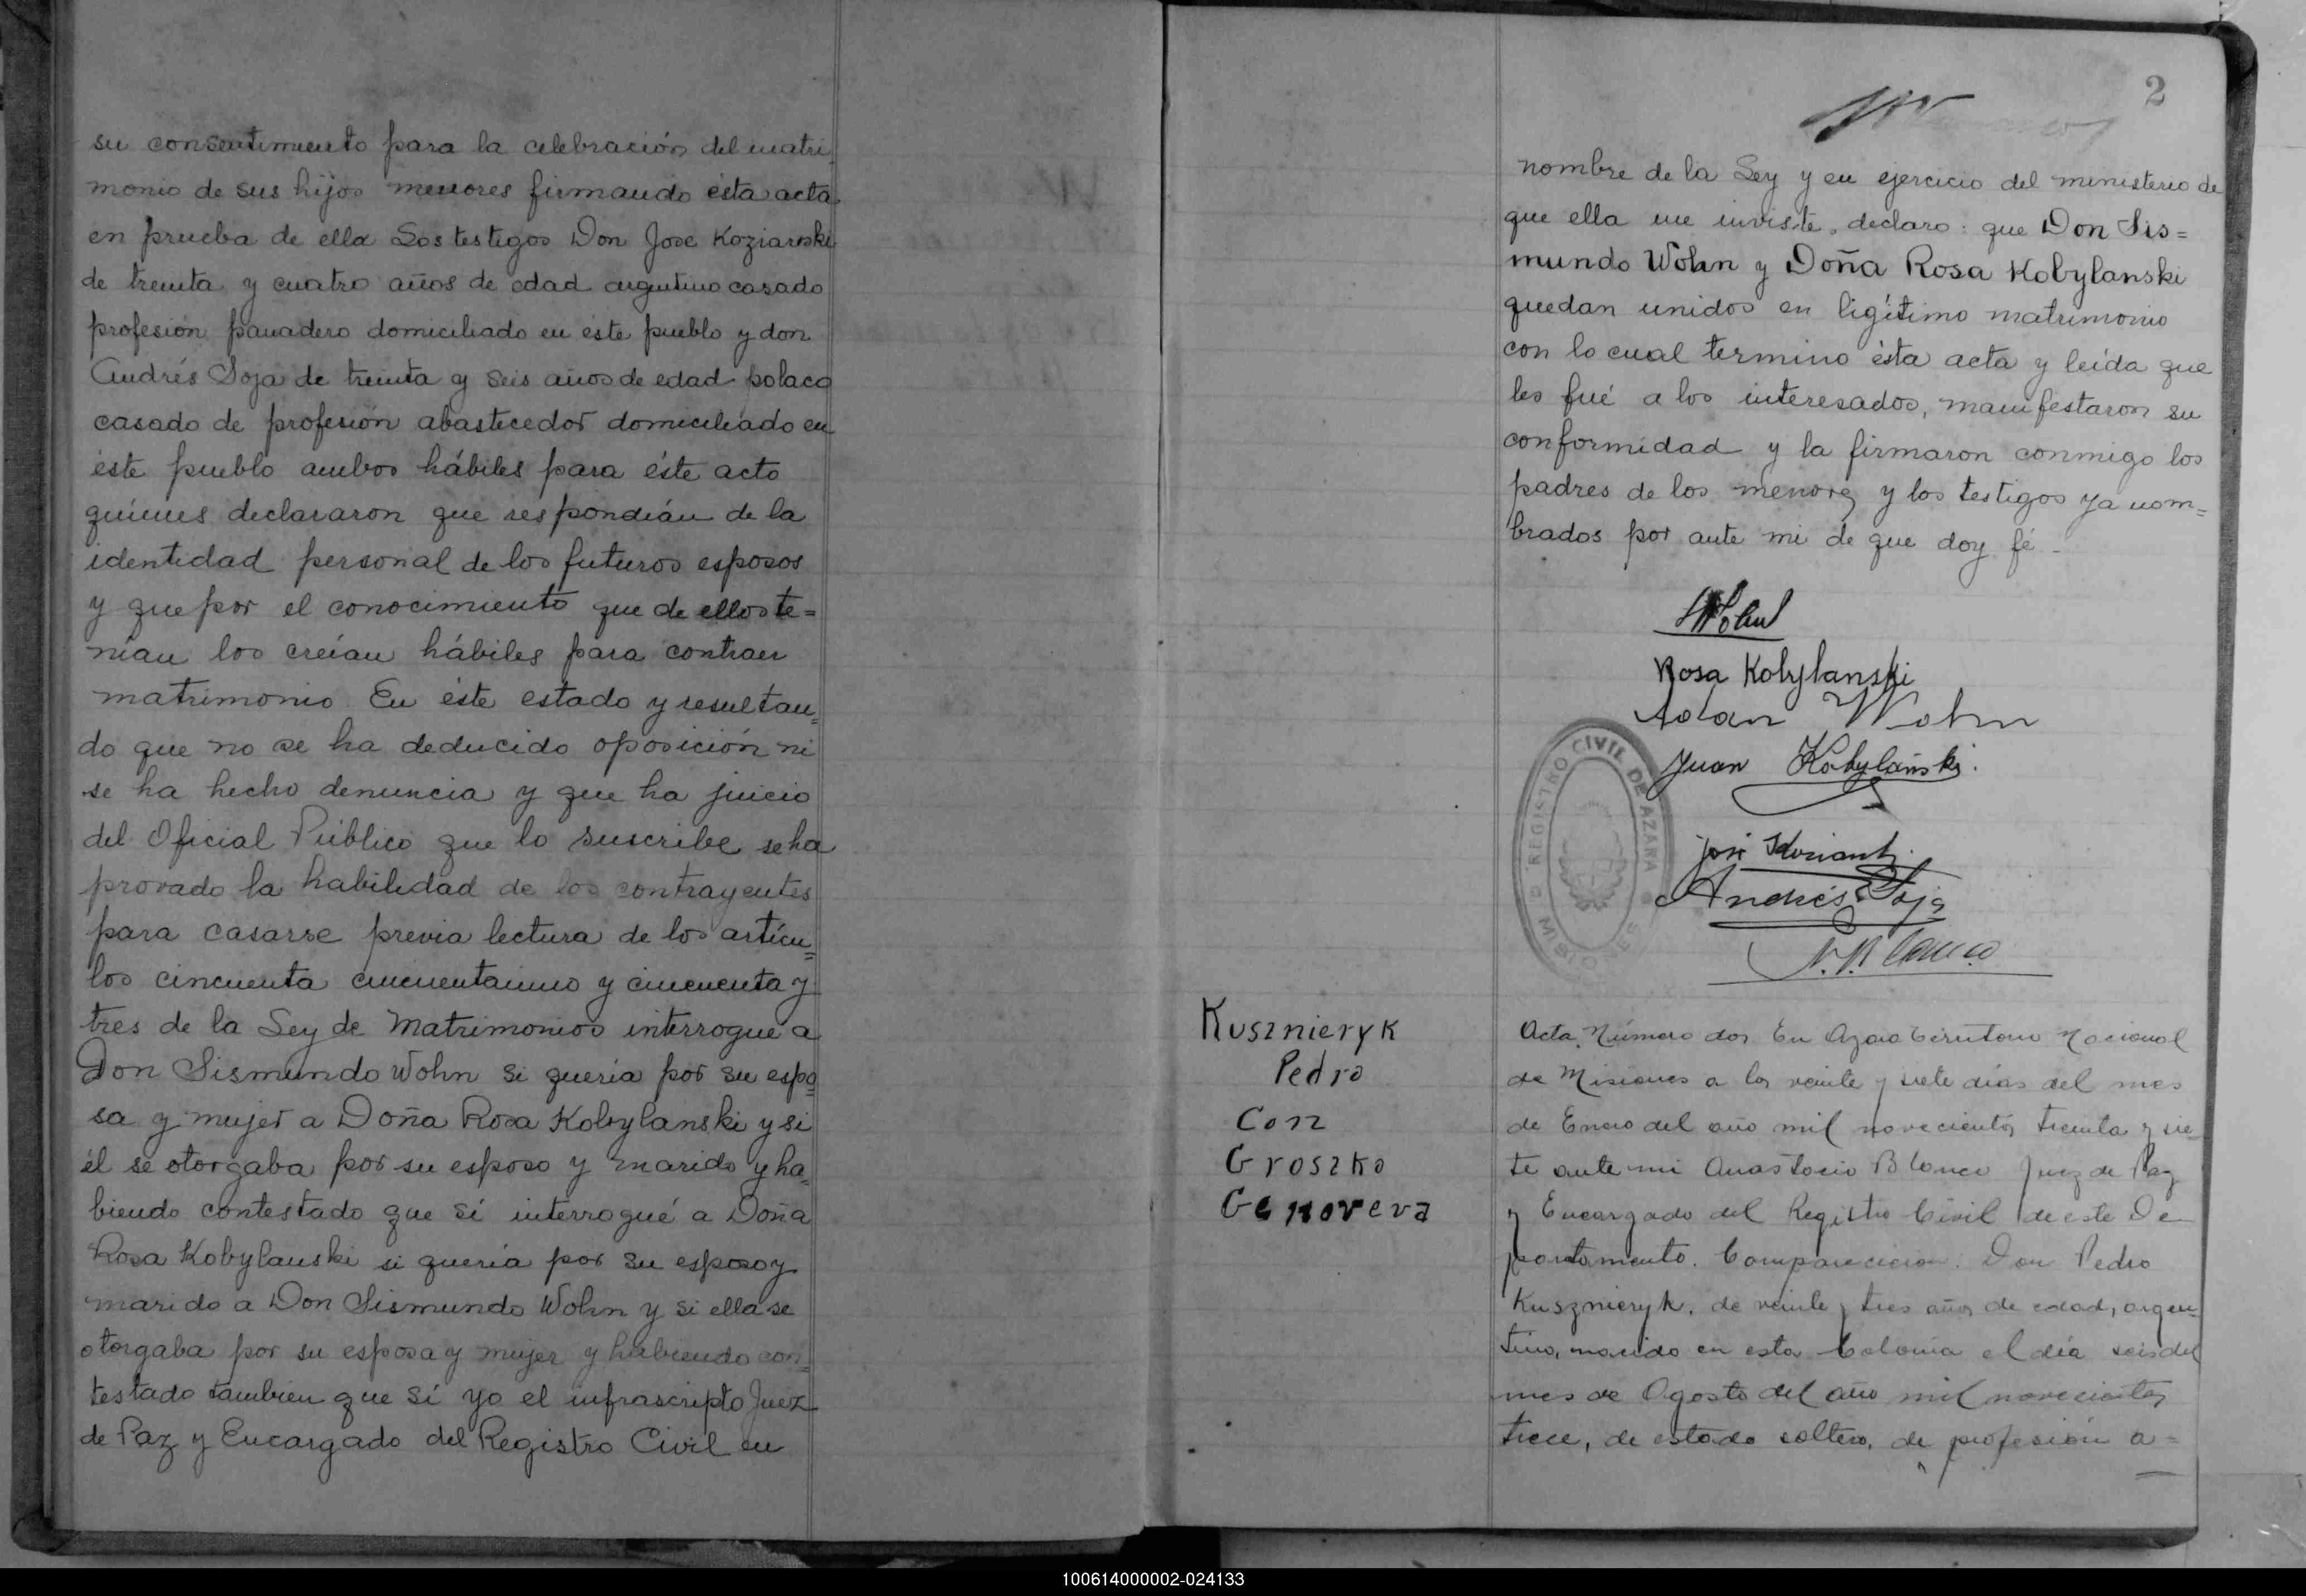 su consentimiento para la celebración del matri=
monio de sus hijos menores firmando ésta acta
en prueba de ella Los testigos Don Jose Koziarski
de treinta y cuatro años de edad argentino casado
profesión panadero domiciliado en éste pueblo y don
Andrés Soja de treinta y seis años de edad polaco
casado de profesión abastecedor domiciliado en
éste pueblo ambos hábiles para éste acto
quienes declararon que respondían de la
identidad personal de los futuros esposos
y que por el conocimiento que de ellos te=
nían los creían hábiles para contraer
matrimonio En éste estado y resultan=
do que no se ha deducido oposición ni
se ha hecho denuncia y que ha juicio
del Oficial Público que lo suscribe se ha
provado la habilidad de los contrayentes
para casarse previa lectura de los artícu=
los cincuenta cincuentaiuno y cincuenta y
tres de la Ley de Matrimonios interrogue a
Don Sismundo Wohn si quería por su espo=
sa y mujer a Doña Rosa Kobylanski y si
él se otorgaba por su esposo y marido y ha=
biendo contestado que sí interrogué a Doña
Rosa Kobylanski si quería por su esposo y
marido a Don Sismundo Wohn y si ella se
otorgaba por su esposa y mujer y habiendo con=
testado tambien que sí yo el infrascripto Juez
de Paz y Encargado del Registro Civil en
2
nombre de la Ley y en ejercicio del ministerio de
que ella me inviste, declaro: que Don Sis=
mundo Wohn y Doña Rosa Kobylanski
quedan unidos en ligítimo matrimonio
con lo cual termino ésta acta y leída que
les fué a los interesados, manifestaron su
conformidad y la firmaron conmigo los
padres de los menores y los testigos ya nom=
brados por ante mi de que doy fé -
SWohn
Rosa Kobylanski
Adan Wohn
Juan Kobylański.
José Koziarski
Andrés Soja
REGISTRO CIVIL DE AZARA
MISIONES
Kusznieryk
Pedro
Con
Groszko
Genoveva
Acta Número dos En Azara Territorio Nacional
de Misiones a los veinte y siete días del mes
de Enero del año mil novecientos treinta y sie-
te ante mi Anastacio Blanco Juez de Paz
y Encargado del Registro Civil de este De-
partamento. Comparecieron: Don Pedro
Kusznieryk, de veinte y tres años de edad, argen-
tino, nacido en esta Colonia el día seis del
mes de Agosto del año mil novecientos
trece, de estado soltero, de profesión a=
100614000002-024133